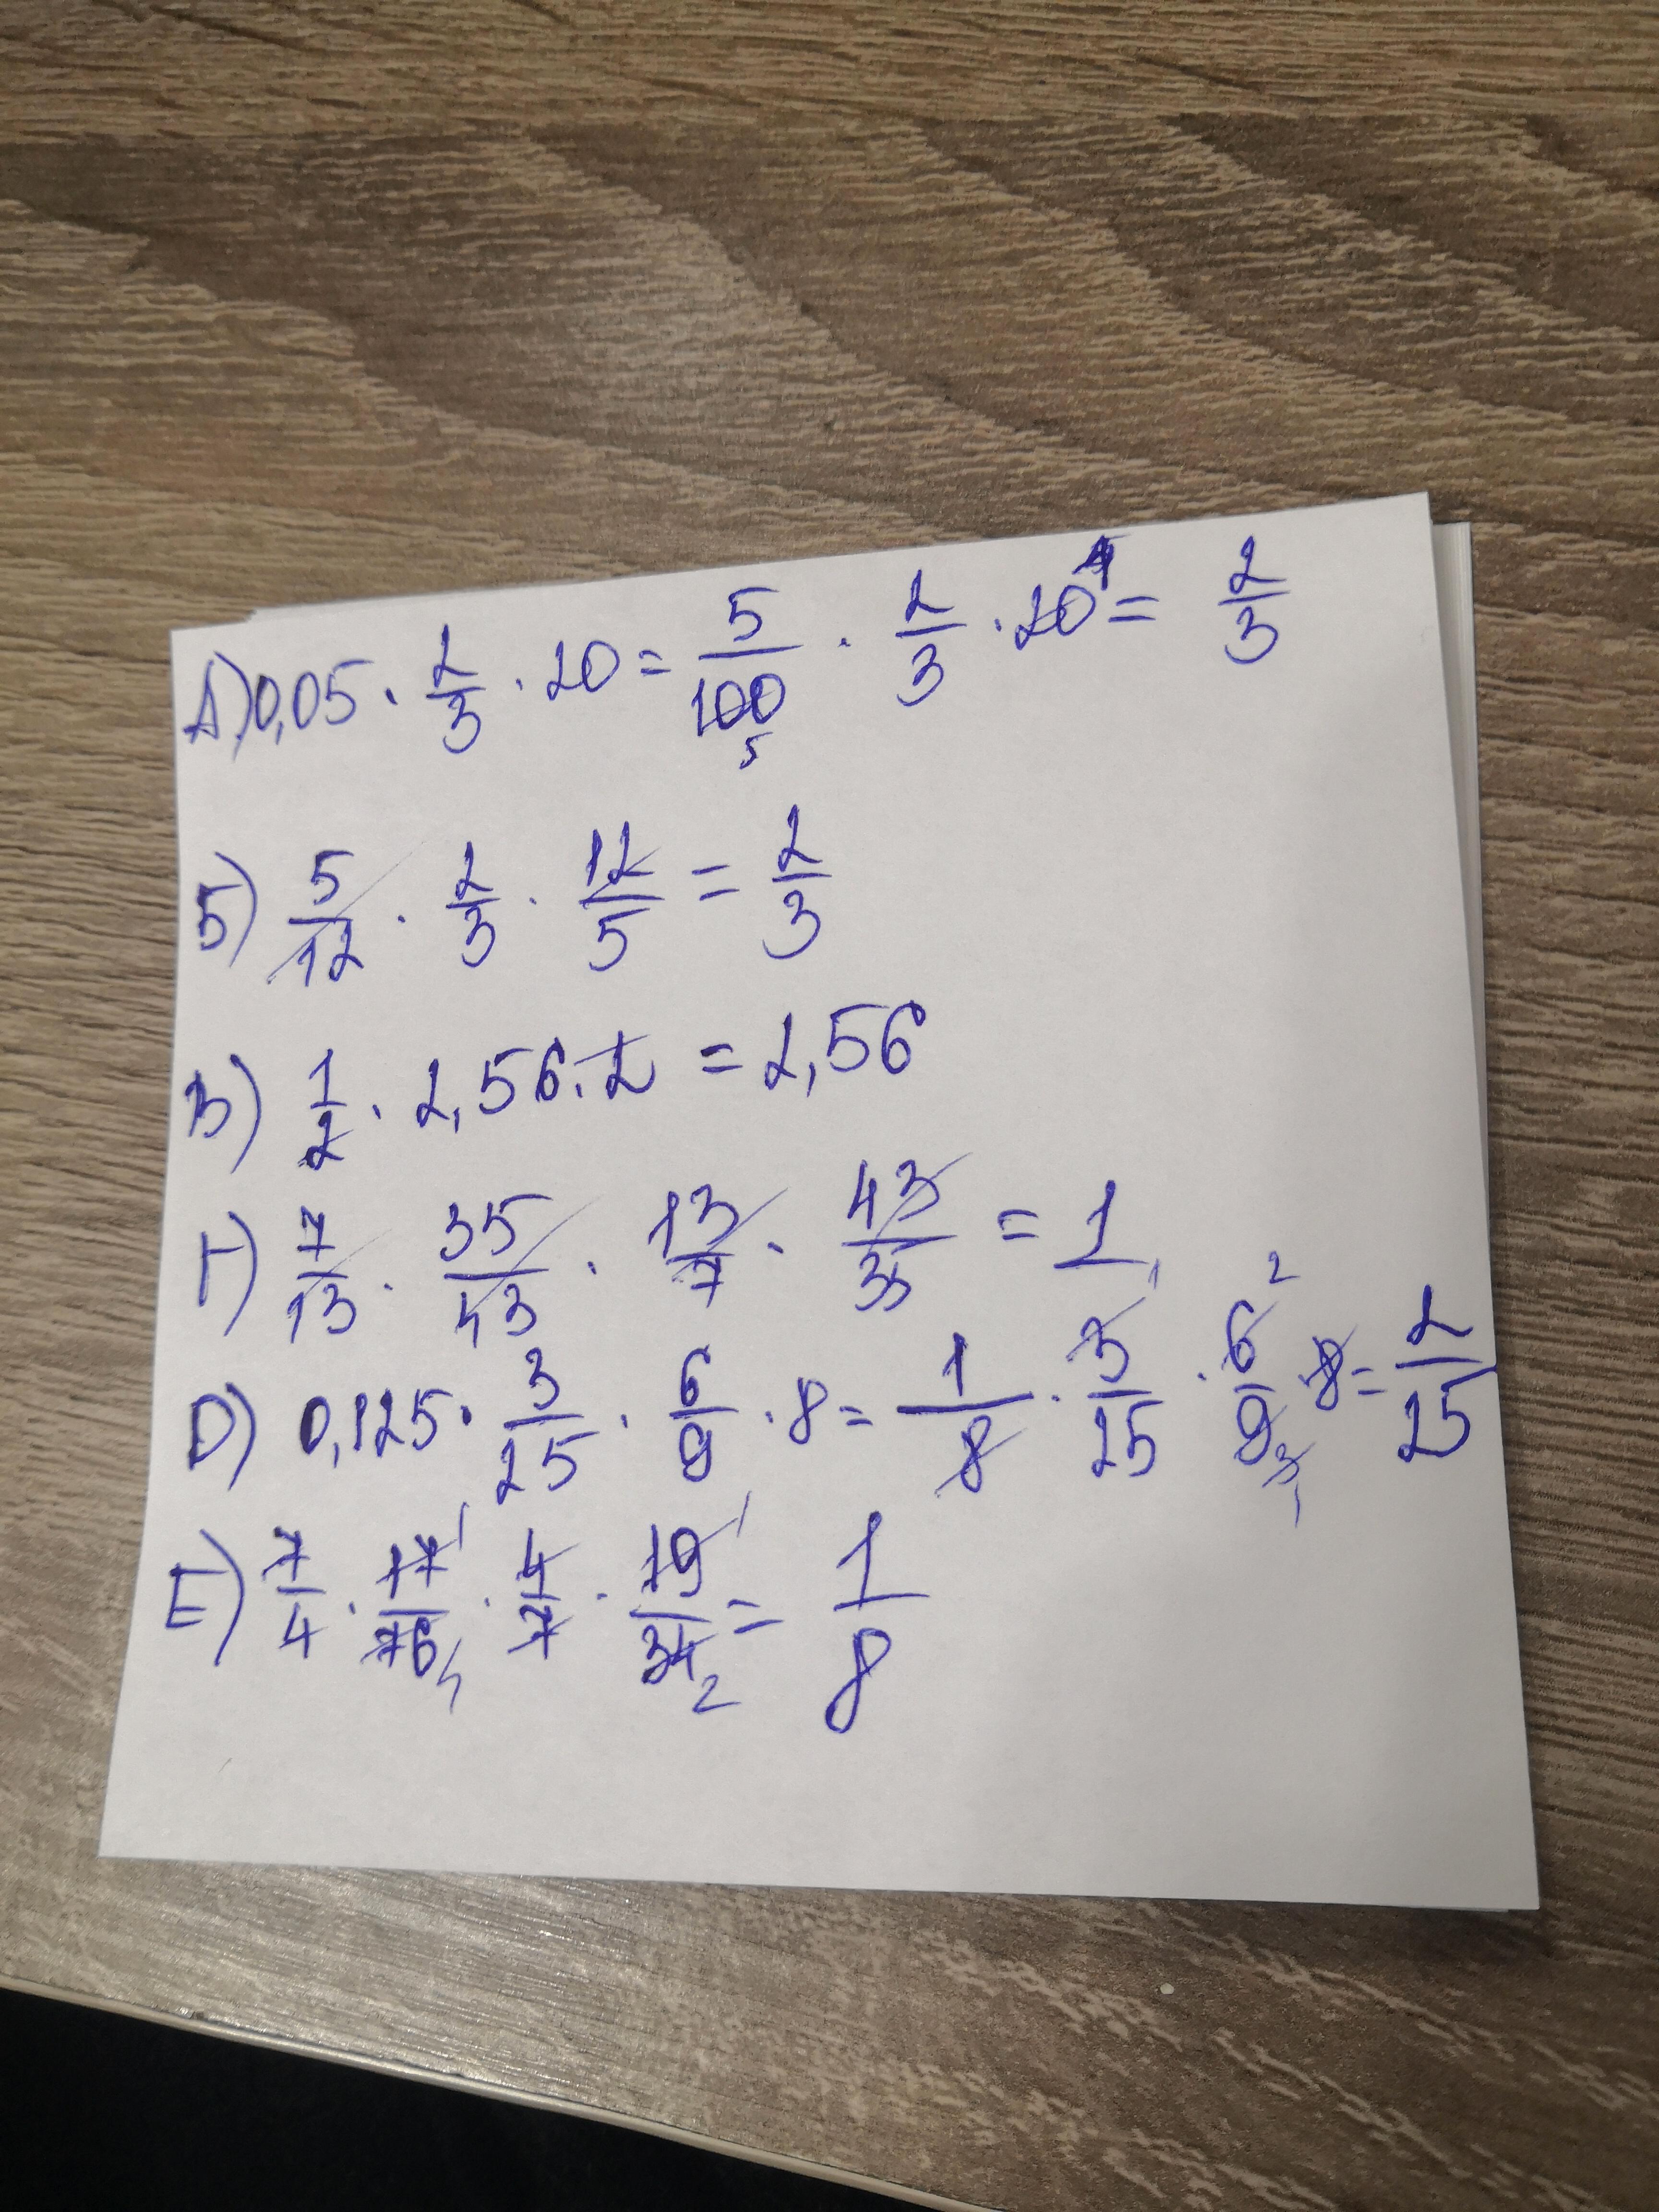 А) 0,05 · 2/3 · 20 = 5/100 5 · 2/3 · 20 1 = 2/3
Б) 5/12 · 2/3 · 12/5 = 2/3
В) 1/2 · 2,56 · 2 = 2,56
Г) 7/13 · 35/43 · 13/7 · 43/35 = 1
D) 0,125 · 3/25 · 6/9 · 8 = 1/8 · 3 1/25 · 6 2/9 3 1 · 8 = 2/25
E) 7/4 · 17 1/76 4 · 4/7 · 19 1/34 2 = 1/8